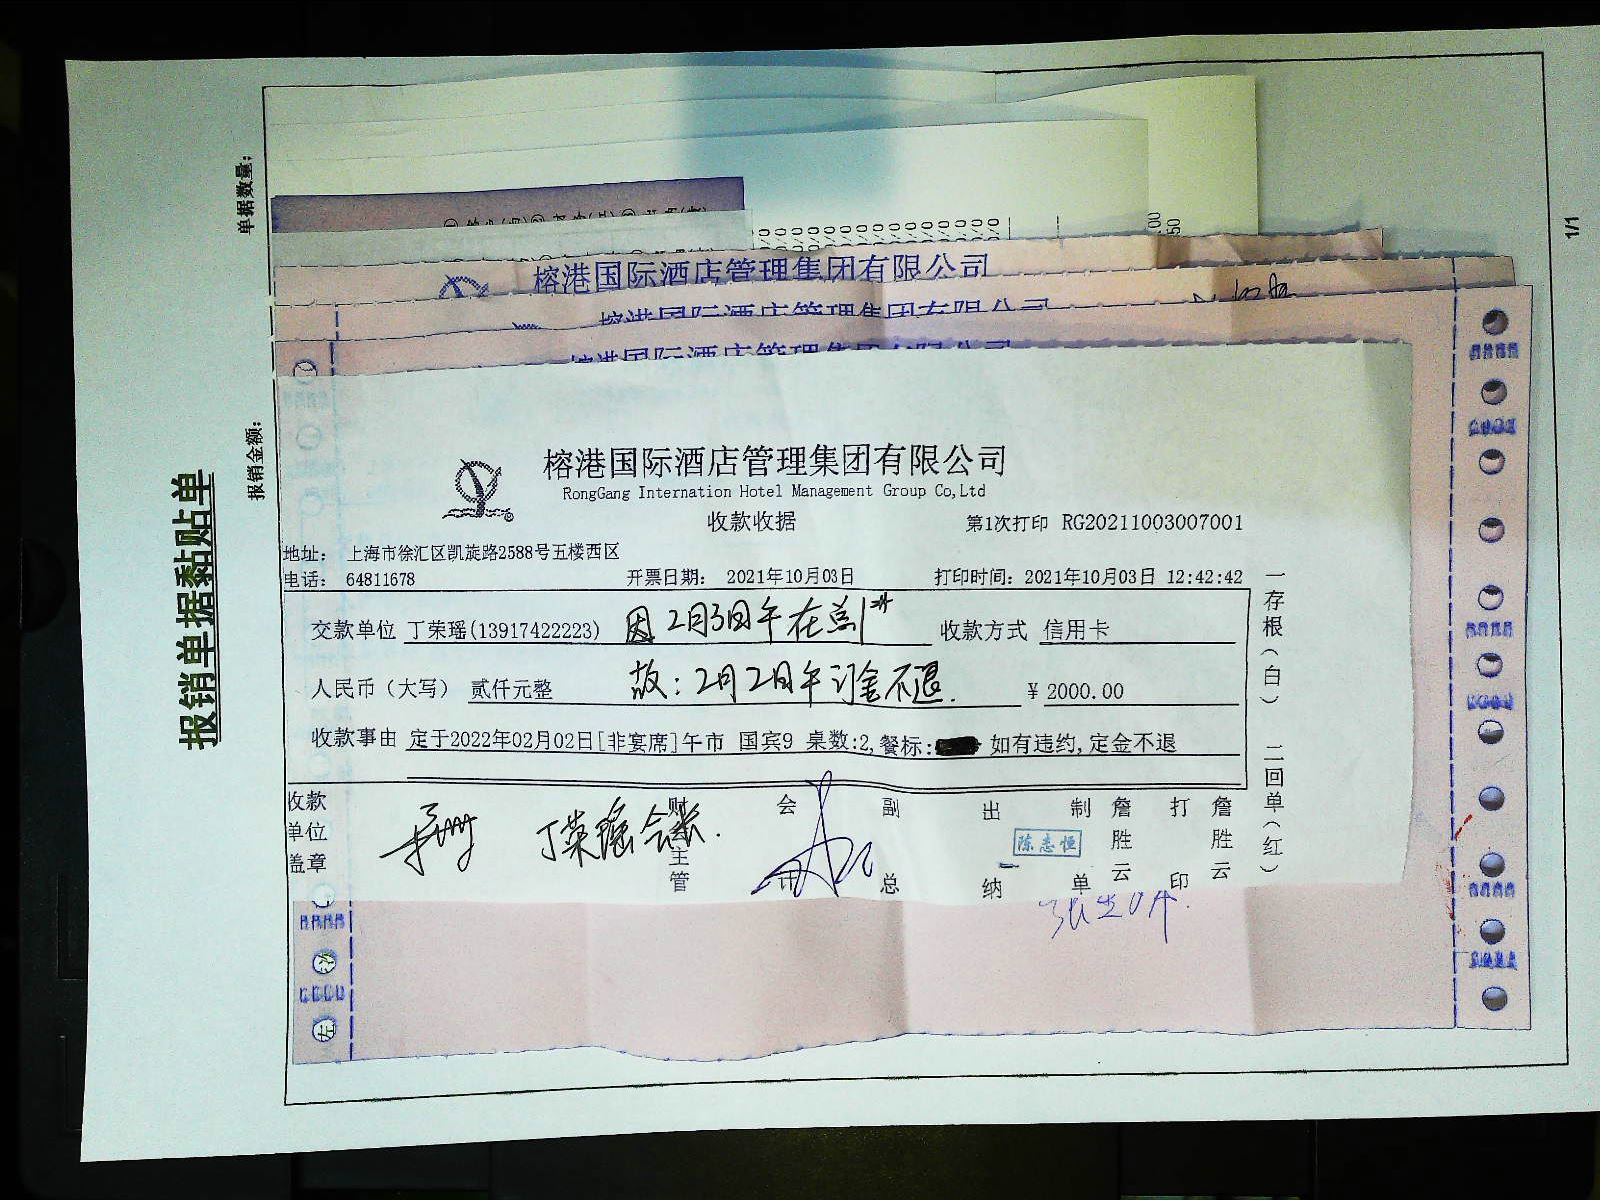 报销单据黏贴单
单据数量：
报销金额：
1/1
榕港国际酒店管理集团有限公司
榕港国际酒店管理集团有限公司
榕港国际酒店管理集团有限公司
榕港国际酒店管理集团有限公司
RongGang Internation Hotel Management Group Co,Ltd
收款收据
第1次打印 RG20211003007001
地址： 上海市徐汇区凯旋路2588号五楼西区
电话： 64811678 开票日期： 2021年10月03日 打印时间：2021年10月03日 12:42:42
交款单位 丁荣瑶(13917422223) 因2月3日午在 收款方式 信用卡
人民币（大写） 贰仟元整 故：2月2日午订金不退. ¥ 2000.00
收款事由 定于2022年02月02日[非宴席]午市 国宾9 桌数:2,餐标: 如有违约,定金不退
一存根（白） 二回单（红）
收款单位盖章
丁荣瑶
财务主管
会计
副总
出纳
陈志恒
制单
詹胜云
打印
詹胜云